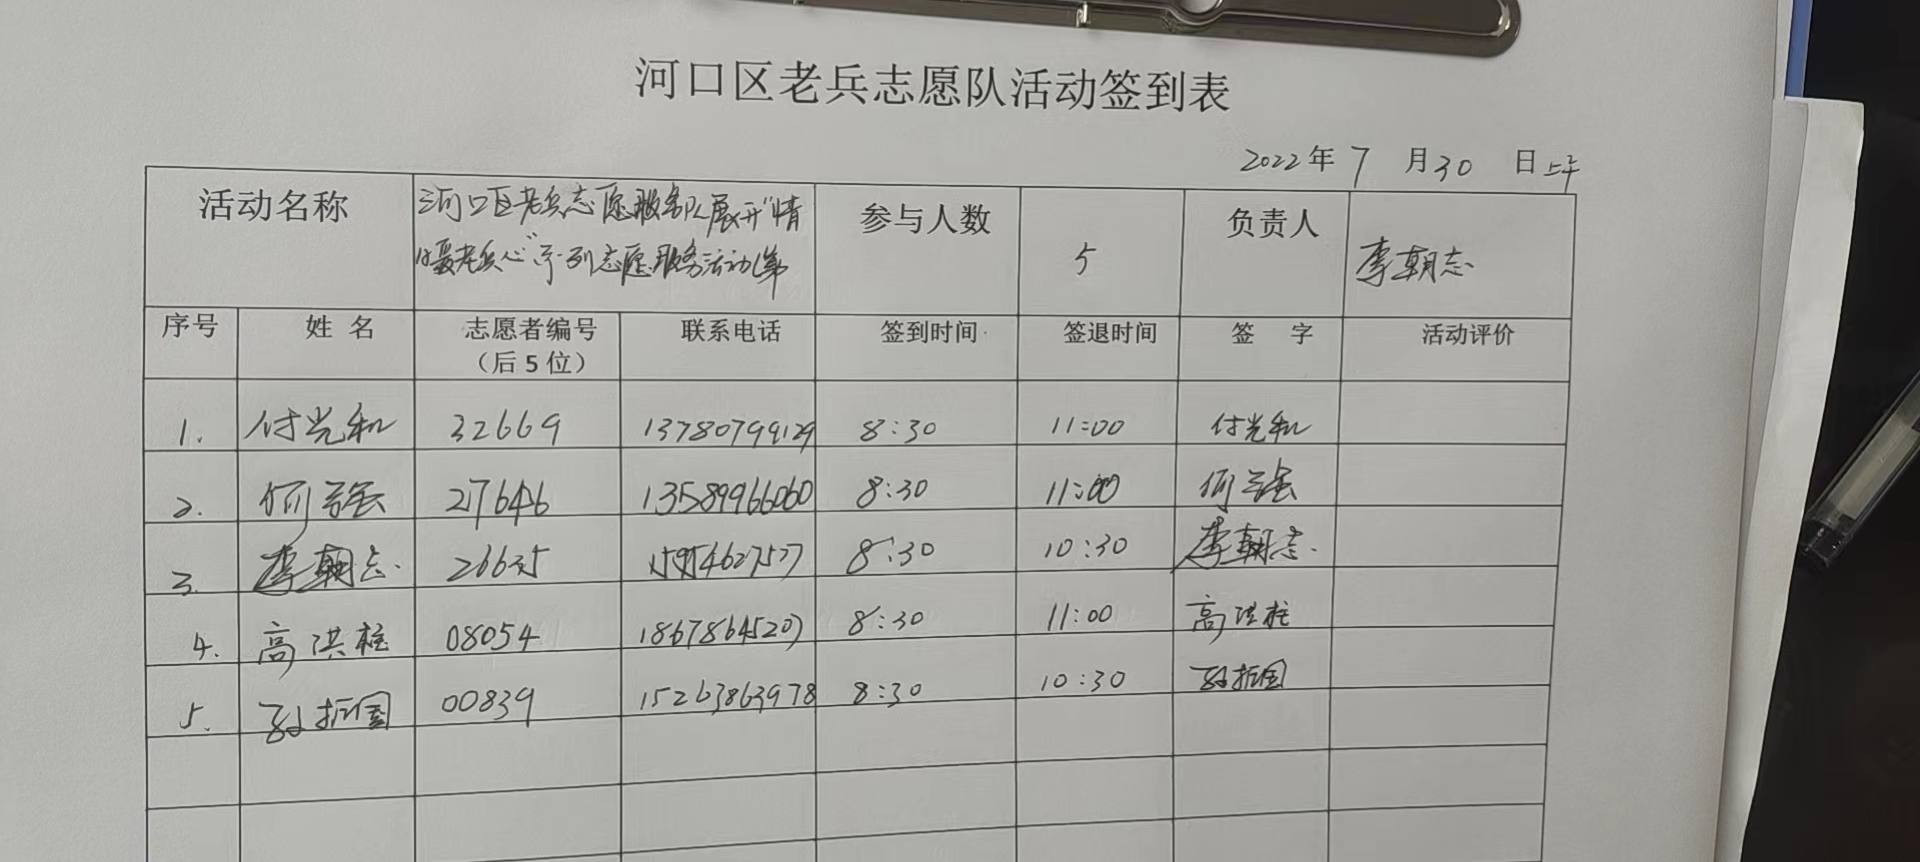 河口区老兵志愿队活动签到表
2022年 7 月 30 日 上午
活动名称 河口区老兵志愿服务队展开"情 参与人数 5 负责人 李朝志
暖老兵心"系列志愿服务活动(第
序号 姓 名 志愿者编号 联系电话 签到时间 签退时间 签 字 活动评价
（后5位）
1. 付光和 32669 13780799129 8:30 11:00 付光和
2. 何强 27646 13589966060 8:30 11:00 何强
3. 李朝志 8:30 10:30 李朝志
4. 高洪柱 08054 18678645207 8:30 11:00 高洪柱
5. 振国 00839 15263863978 8:30 10:30 振国